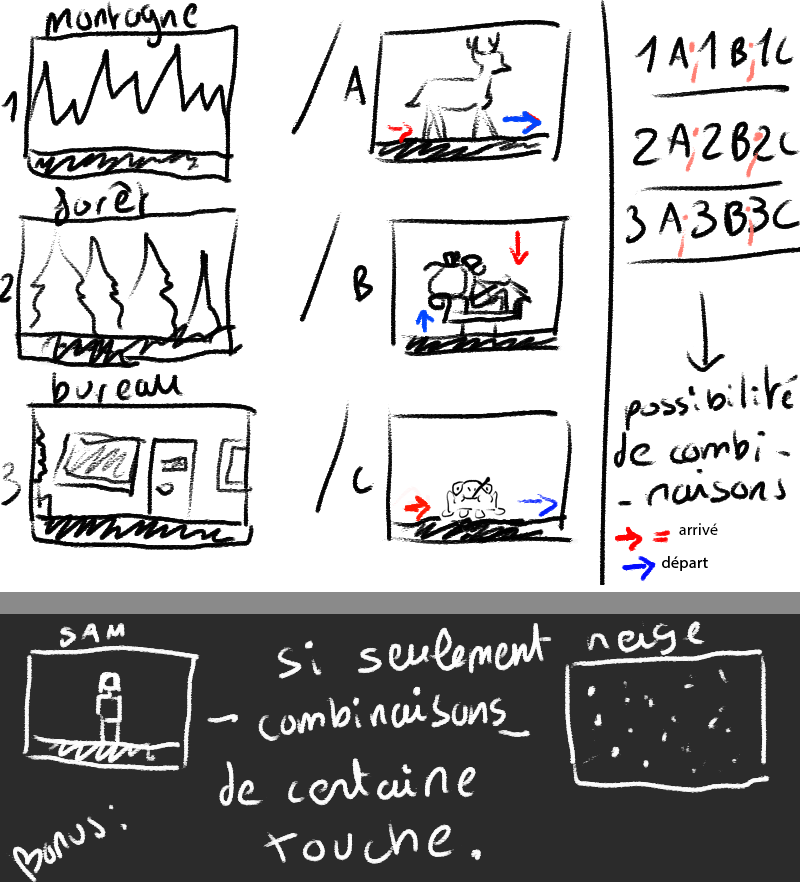 montagne
1
A
forêt
2
B
bureau
3
C
1A;1B;1C
2A;2B;2C
3A;3B;3C
possibilité
de combi-
-naisons
= arrivé
départ
SAM
si seulement
combinaisons
de certaine
touche.
neige
Bonus: